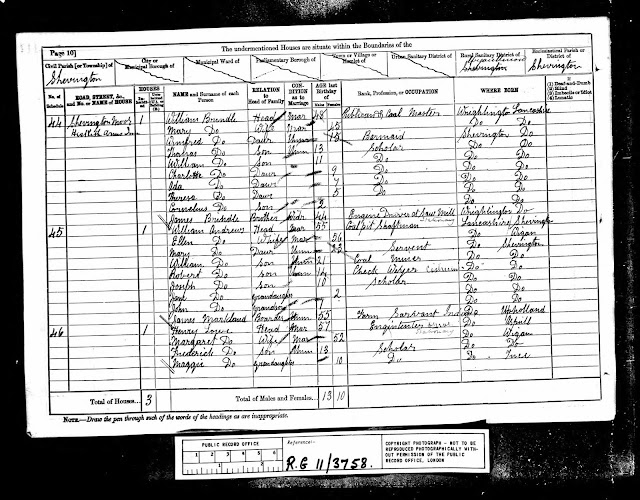 Page 10]
The undermentioned Houses are situate within the Boundaries of the
Civil Parish [or Township] of
Shevington
City or Municipal Borough of
Municipal Ward of
Parliamentary Borough of
Town or Village or Hamlet of
Urban Sanitary District of
Rural Sanitary District of
Shevington
Ecclesiastical Parish or District of
Shevington
No. of Schedule
ROAD, STREET, &c., and No. or NAME of HOUSE
HOUSES
NAME and Surname of each Person
RELATION to Head of Family
CONDITION as to Marriage
AGE last Birthday of
Males
Females
Rank, Profession, or OCCUPATION
WHERE BORN
If
(1) Deaf-and-Dumb
(2) Blind
(3) Imbecile or Idiot
(4) Lunatic
44 Shevington Moor 1 William Brindle Head Mar 48 Publican & Coal Master Wrightington Lancashire
Arms Inn Mary Do Wife Mar Do Do
Winifred Do Daur Barmaid Shevington Do
Thomas Do Son Unm 13 Scholar Do Do
William Do Son 11 Do Do Do
Charlotte Do Daur 9 Do Do Do
Ida Do Daur 7 Do Do Do
Theresa Do Daur 5 Do Do Do
Cornelius Do Son Do Do
James Brindle Brother 44 Engine Driver at Saw Mill Wrightington Do
45 1 William Andrews Head Mar 55 Coal pit Shaftman Lancashire Shevington
Ellen Do Wife Mar 56 Do Wigan
Mary Do Daur Unm 22 Servent Do Shevington
William Do Son 21 Coal Miner Do Do
Robert Do Son 14 Check Do Do
Joseph Do Son 10 Scholar Do Do
Jane Do Grandaughter 2 Do Do
John Do Grandson Do Do
James Markland Boarder Unm 55 Farm Servant Upholland
46 1 Henry Lowe Head Mar 57
Margaret Do Wife Mar 52 Do Wigan
Frederick Do Son Unm 13 Scholar Do Do
Maggie Do Grandaughter 10 Do Do Ince
Total of Houses... 3
Total of Males and Females... 13 10
NOTE.—Draw the pen through such of the words of the headings as are inappropriate.
PUBLIC RECORD OFFICE
1 2
Reference:-
R.G 11/3758.
COPYRIGHT PHOTOGRAPH - NOT TO BE
REPRODUCED PHOTOGRAPHICALLY WITH-
OUT PERMISSION OF THE PUBLIC
RECORD OFFICE, LONDON